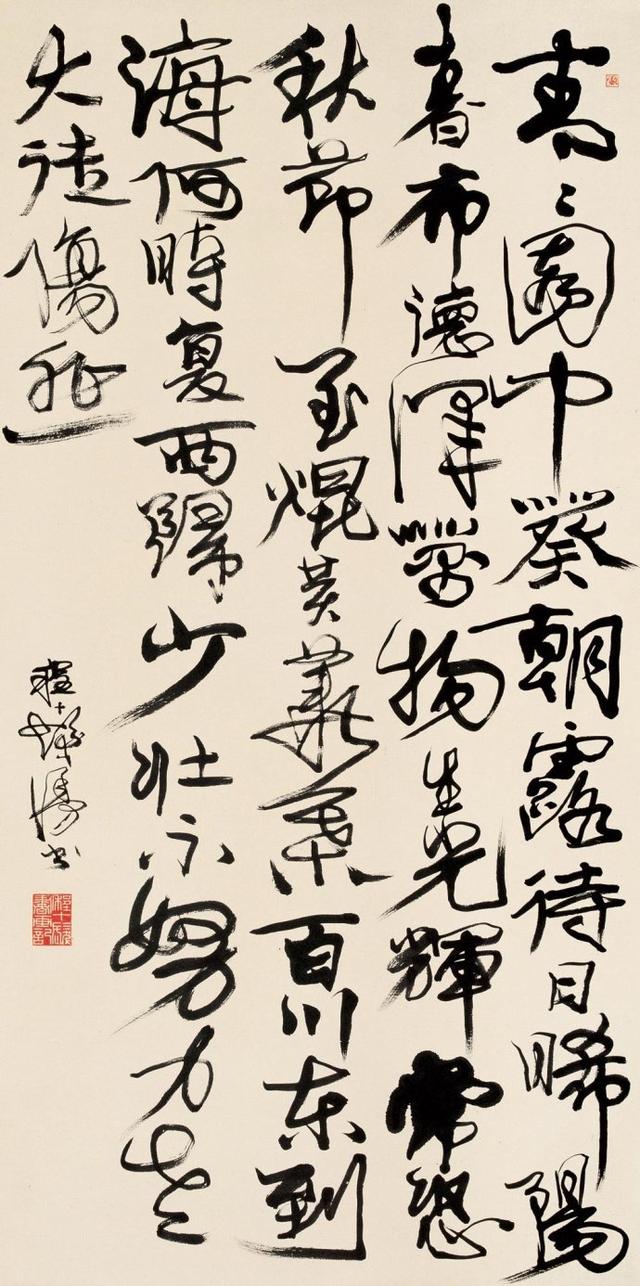 青〻園中葵朝露待日晞陽
春布德澤萬物生光輝常恐
秋節至焜黃華葉百川東到
海何時复西歸少壯不努力老
大徒傷悲
程十髮漫書